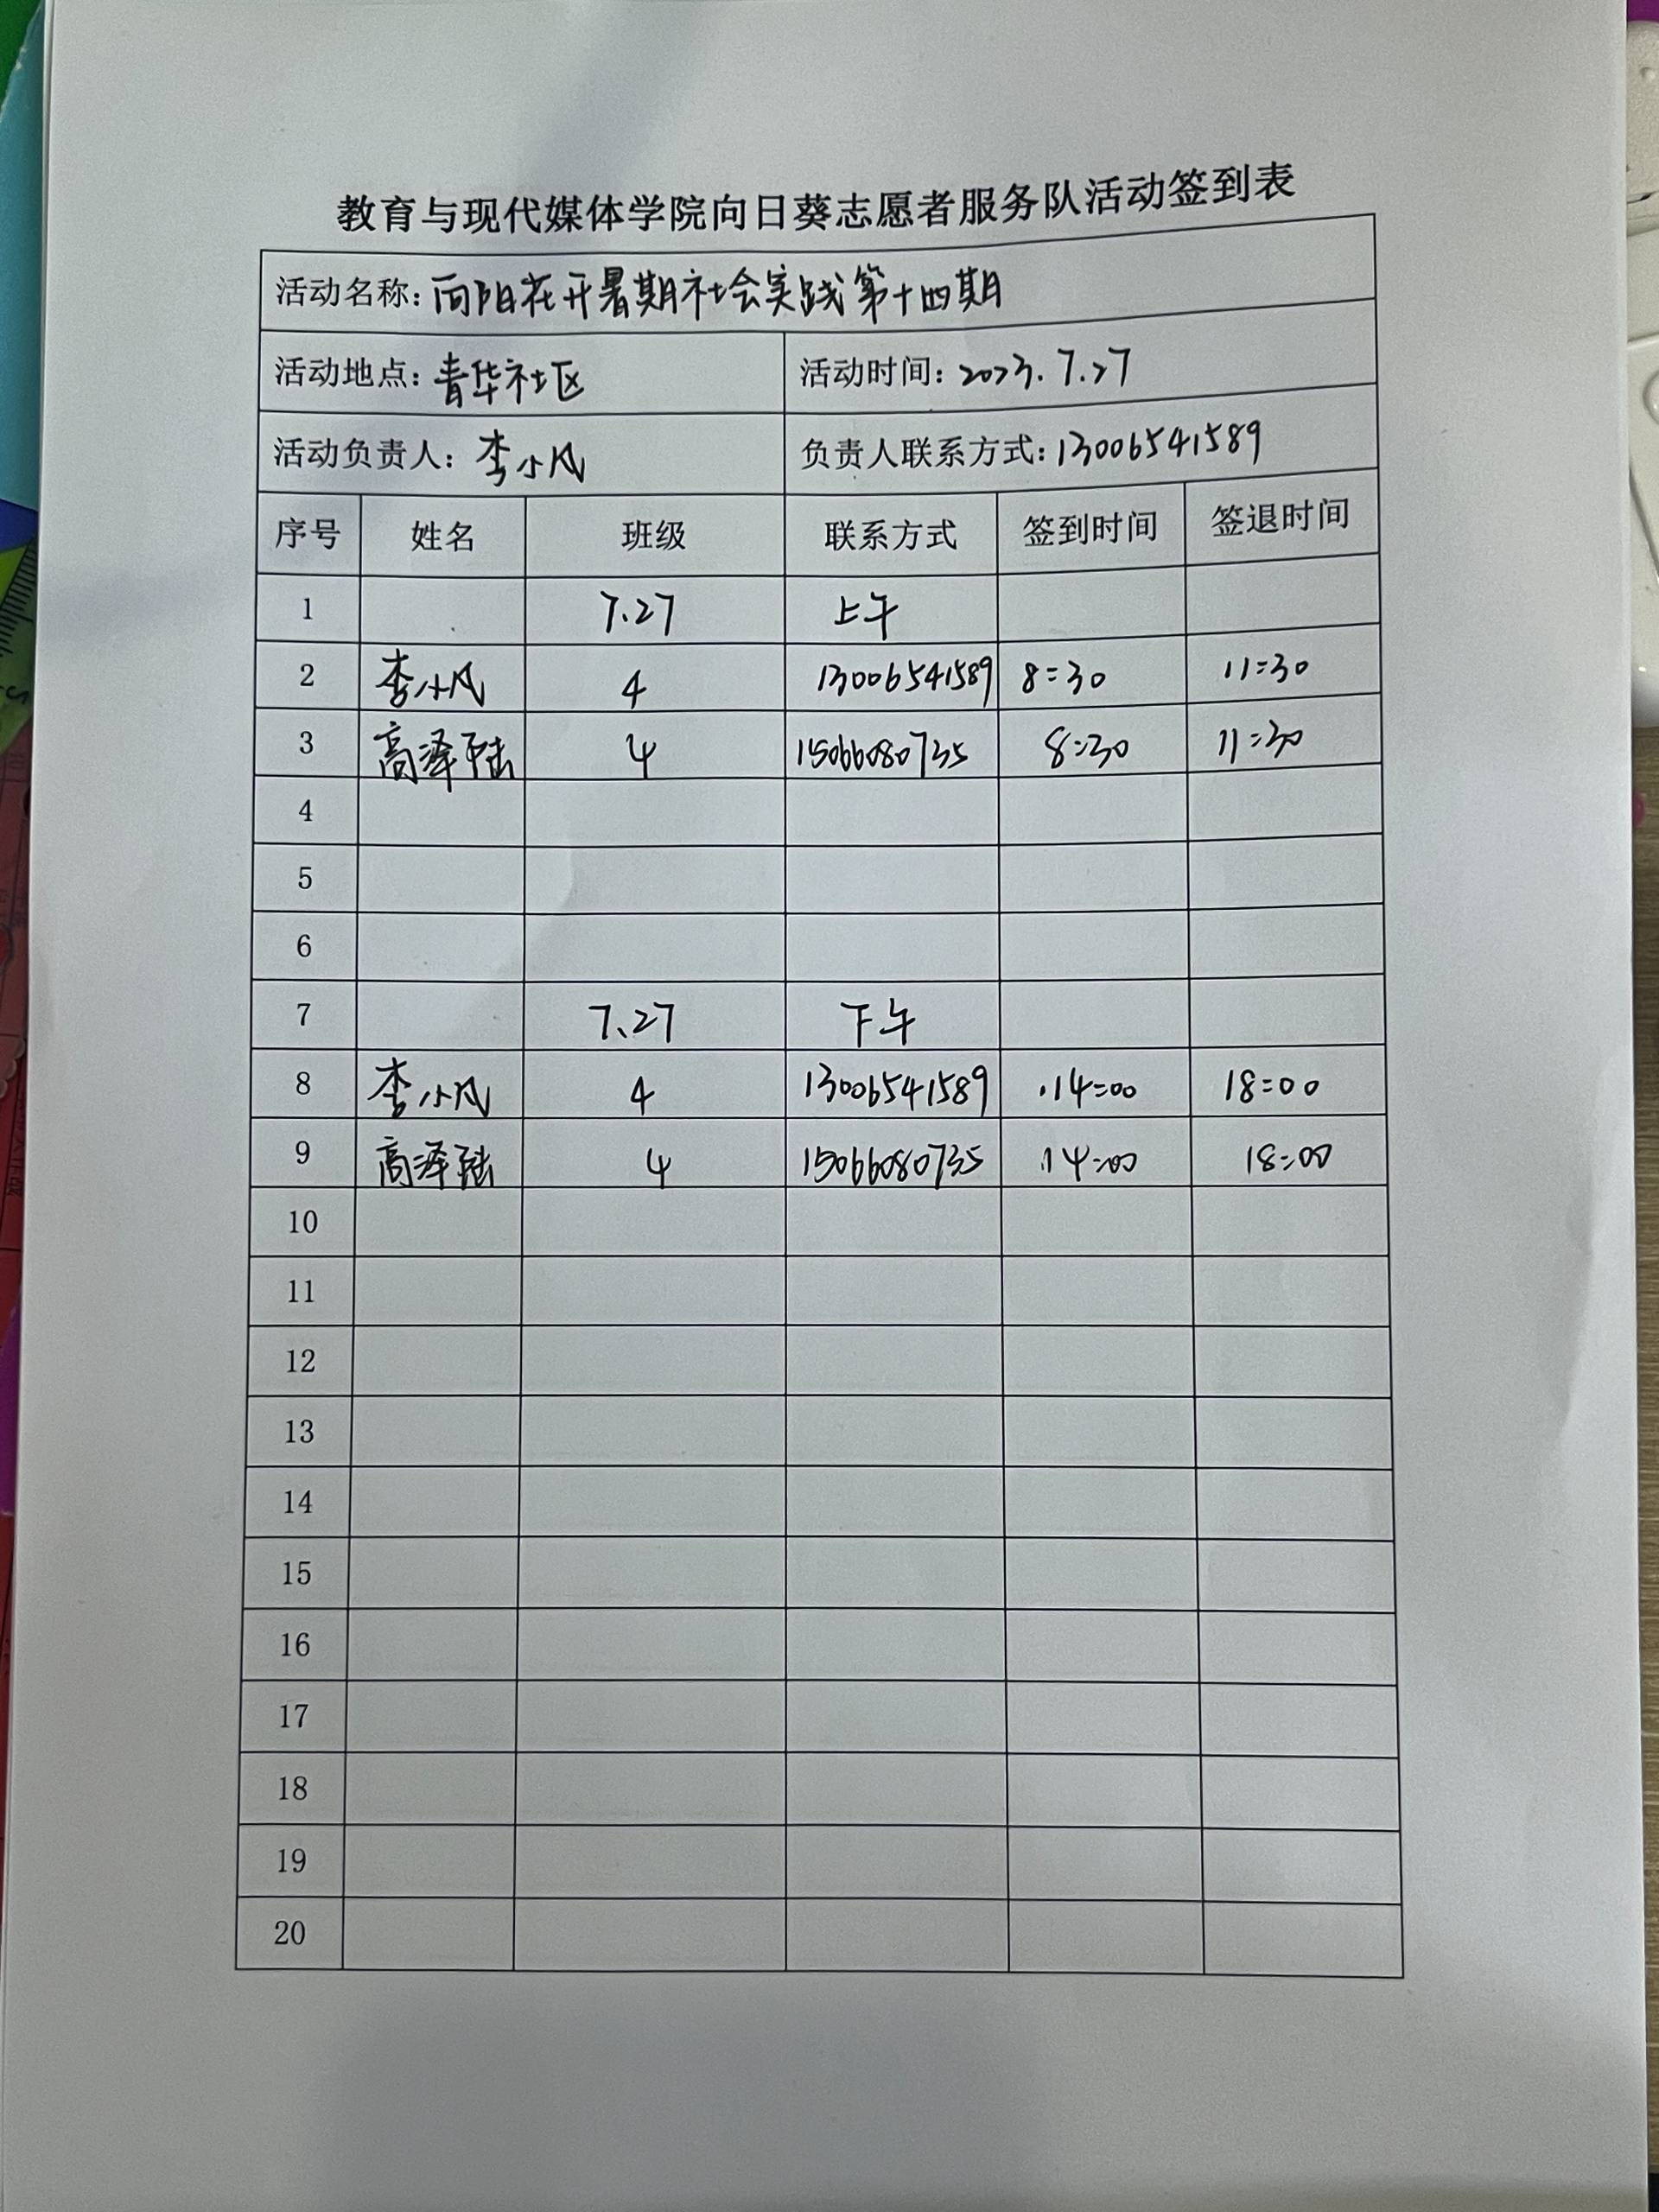 教育与现代媒体学院向日葵志愿者服务队活动签到表
活动名称: 向阳花开暑期社会实践第十四期
活动地点: 青华社区 活动时间: 2023.7.27
活动负责人: 李小风 负责人联系方式: 13006541589
序号 姓名 班级 联系方式 签到时间 签退时间
1 7.27 上午
2 李小风 4 13006541589 8:30 11:30
3 高泽 4 15066080735 8:30 11:30
4
5
6
7 7.27 下午
8 李小风 4 13006541589 14:00 18:00
9 高泽 4 15066080735 14:00 18:00
10
11
12
13
14
15
16
17
18
19
20